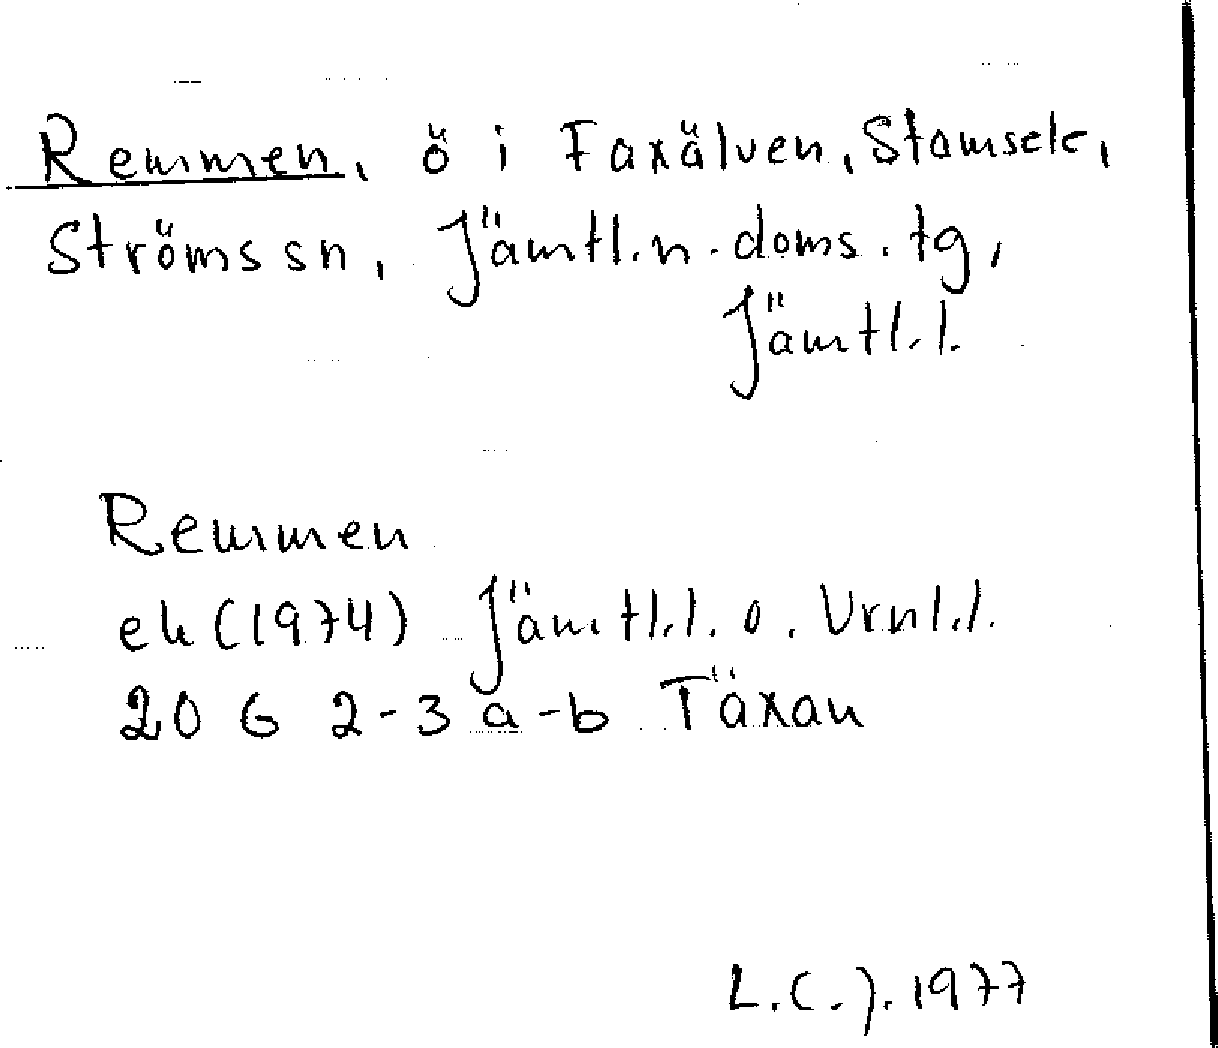 Remmen, ö i Faxälven, Stamsele,
Ströms sn, Jämtl. n. doms. tg,
Jämtl. l.
Remmen
ek (1974) Jämtl. l. o. Vrnl. l.
20 G 2-3 a-b Täxan
L.C.J. 1977